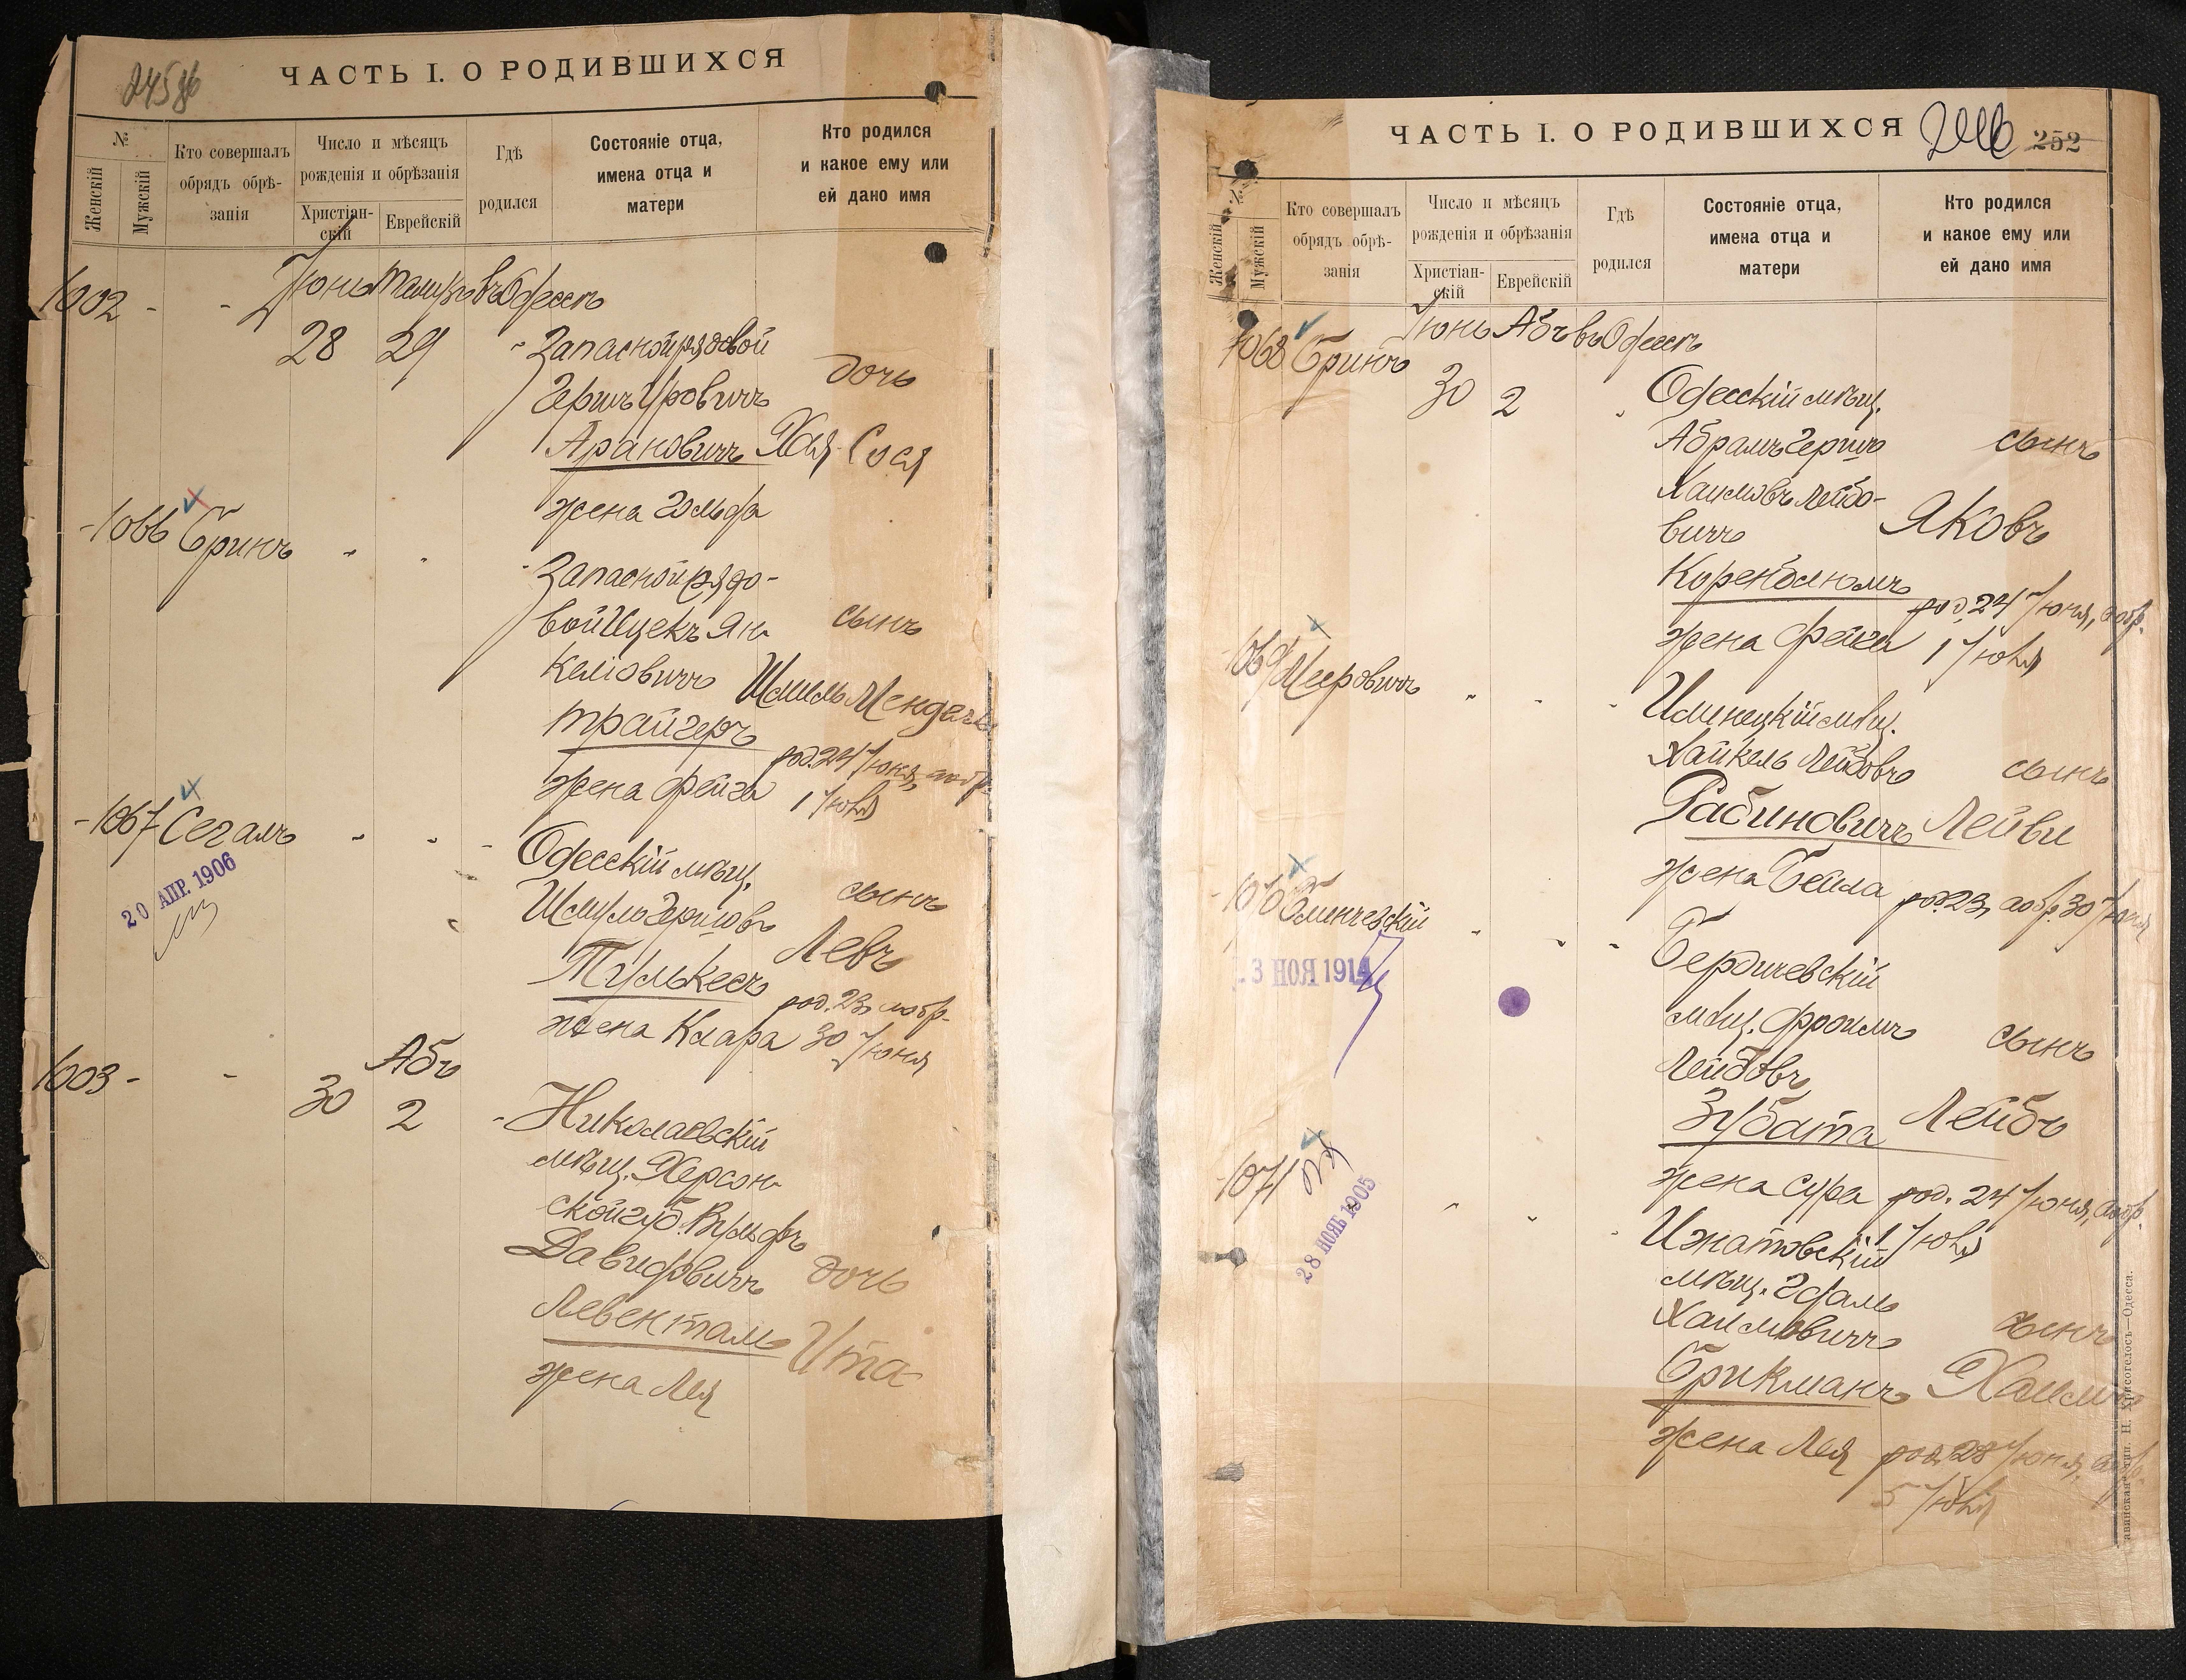 245 об
ЧАСТЬ I. О РОДИВШИХСЯ
№
Женскій
Мужскій
Кто совершалъ
обрядъ обрѣ-
занія
Число и мѣсяцъ
рожденія и обрѣзанія
Христіан-
скій
Еврейскій
Гдѣ
родился
Состояніе отца,
имена отца и
матери
Кто родился
и какое ему или
ей дано имя
1002 - - Іюнь Тамузъ въ Одессѣ
28 29 Запасной рядовой
дочь
Гершъ Уровичъ
Арановичъ Хая-Сося
жена Гольда
1066 Гринъ
Запасной рядо-
вой Ицекъ Ян- сынъ
келіовичъ Шмиль Мендель
Трайгеръ
род. 24 Іюня, а обр.
жена Фейга 1 Іюля
1067 Сегалъ
20 АПР. 1906
Одесскій мѣщ.
сынъ
Шмуль Гершовъ
Левъ
Тулькесъ
род. 23, а обр.
жена Клара 30 Іюня
1003 - - Абъ
30 2 Николаевскій
мѣщ. Херсон-
ской губ. Вульфъ
Давидовичъ дочь
Левенталь Ита
жена Лея
ЧАСТЬ I. О РОДИВШИХСЯ
246
252
Женскій
Мужскій
Кто совершалъ
обрядъ обрѣ-
занія
Число и мѣсяцъ
рожденія и обрѣзанія
Христіан-
скій
Еврейскій
Гдѣ
родился
Состояніе отца,
имена отца и
матери
Кто родился
и какое ему или
ей дано имя
1068 Гринъ Іюнь Абъ въ Одессѣ
30 2 Одесскій мѣщ.
Абрамъ Гершъ сынъ
Хаимовъ Лейбо-
вичъ Яковъ
Коренблюмъ
род. 24 Іюня, а обр.
жена Фейга 1 Іюля
1069 Мееровичъ
Илинецкій мѣщ.
Хайкель Лейбовъ сынъ
Рабиновичъ Лейви
жена Бейла род. 23, а обр. 30 Іюня
1070
3 НОЯ 1914
Бердичевскій
мѣщ. Фроимъ сынъ
Лейбовъ
Зубата Лейбъ
жена Сура род. 24 Іюня, а обр.
1 Іюля
1071
28 НОЯБ 1905
мѣщ.
Хаимовичъ сынъ
Брикманъ Хаимъ
жена Лея род. 28 Іюня, а обр.
5 Іюля
Н. Хрисогелосъ—Одесса.